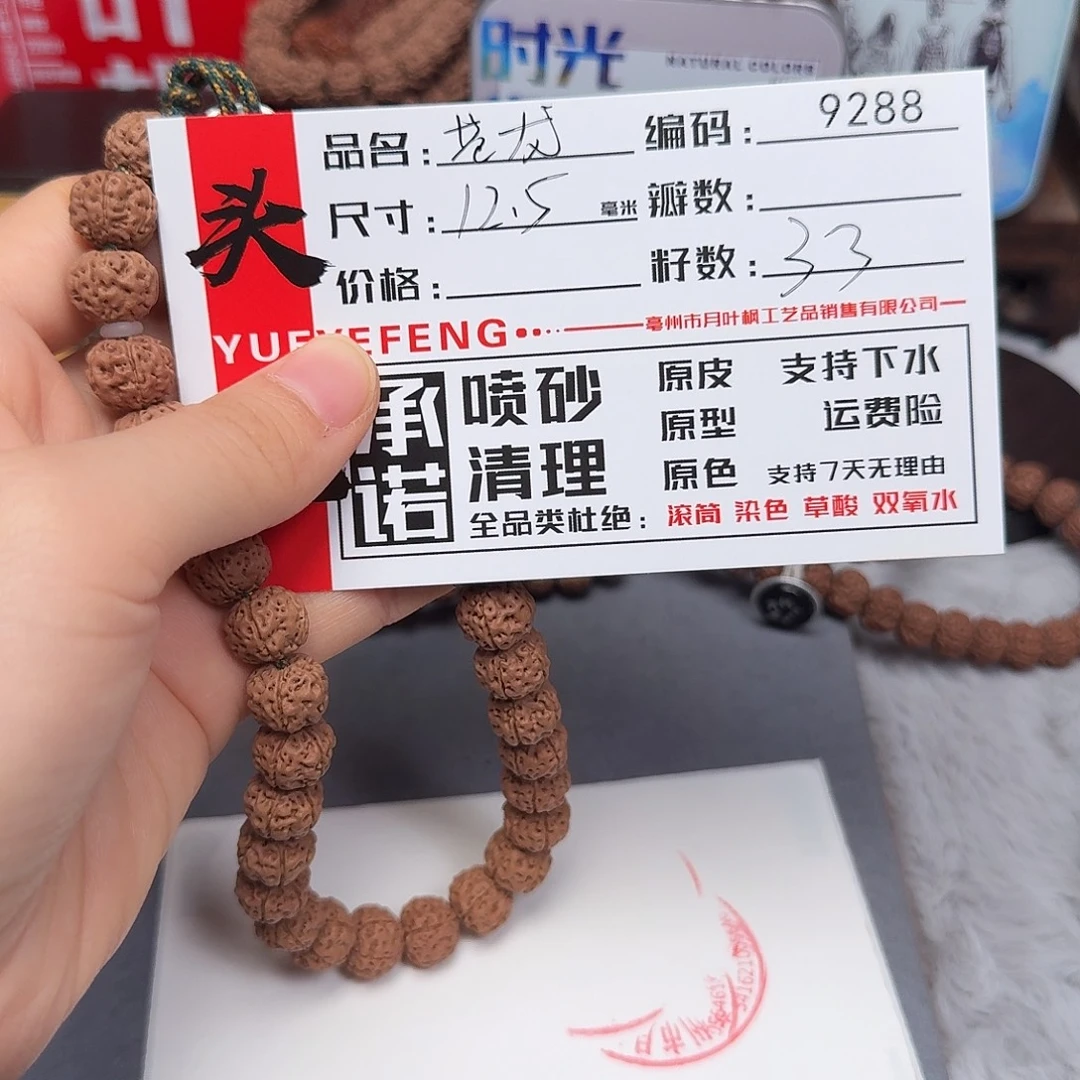 时光
NATURAL COLORS
头
品名: 苍龙 编码: 9288
尺寸: 12.5 毫米 瓣数:
价格: 籽数: 33
YUEYEFENG
亳州市月叶枫工艺品销售有限公司
承诺
喷砂 原皮 支持下水
清理 原型 运费险
原色 支持7天无理由
全品类杜绝: 滚筒 染色 草酸 双氧水